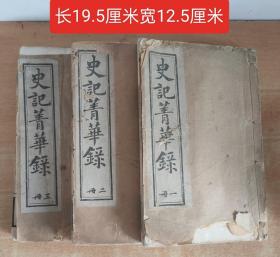 长19.5厘米宽12.5厘米
史記菁華錄
三冊
史記菁華錄
二冊
史記菁華錄
一冊